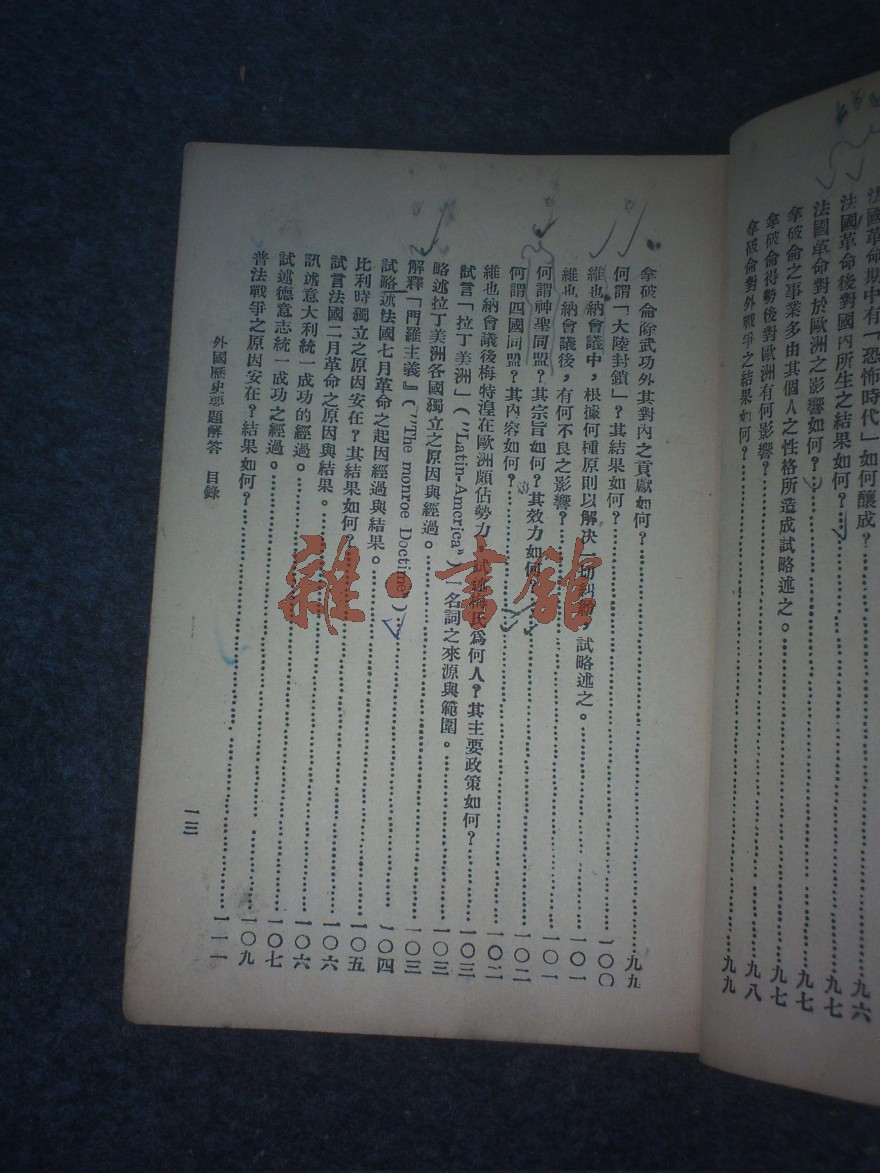 法國革命期中有「恐怖時代」如何釀成?……九六
法國革命後對國內所生之結果如何?……九七
法國革命對於歐洲之影響如何?……九七
拿破侖之事業多由其個人之性格所造成試略述之。……九七
拿破侖得勢後對歐洲有何影響?……九八
拿破侖對外戰爭之結果如何?……九九
拿破侖除武功外其對內之貢獻如何?……九九
何謂「大陸封鎖」?其結果如何?……一〇〇
維也納會議中,根據何種原則以解決一切糾紛,試略述之。……一〇一
維也納會議後,有何不良之影響?……一〇一
何謂神聖同盟?其宗旨如何?其效力如何?……一〇二
何謂四國同盟?其內容如何?……一〇二
維也納會議後梅特湟在歐洲頗佔勢力,試述梅氏爲何人?其主要政策如何?……一〇三
試言「拉丁美洲」("Latin-America")一名詞之來源與範圍。……一〇三
略述拉丁美洲各國獨立之原因與經過。……一〇三
解釋「門羅主義」("The monroe Doctime")……一〇四
試略述法國七月革命之起因經過與結果。……一〇五
比利時獨立之原因安在?其結果如何?……一〇六
試言法國二月革命之原因與結果。……一〇六
訊述意大利統一成功的經過。……一〇七
試述德意志統一成功之經過。……一〇九
普法戰爭之原因安在?結果如何?……一一一
外國歷史要題解答 目錄
一三
雜·書館